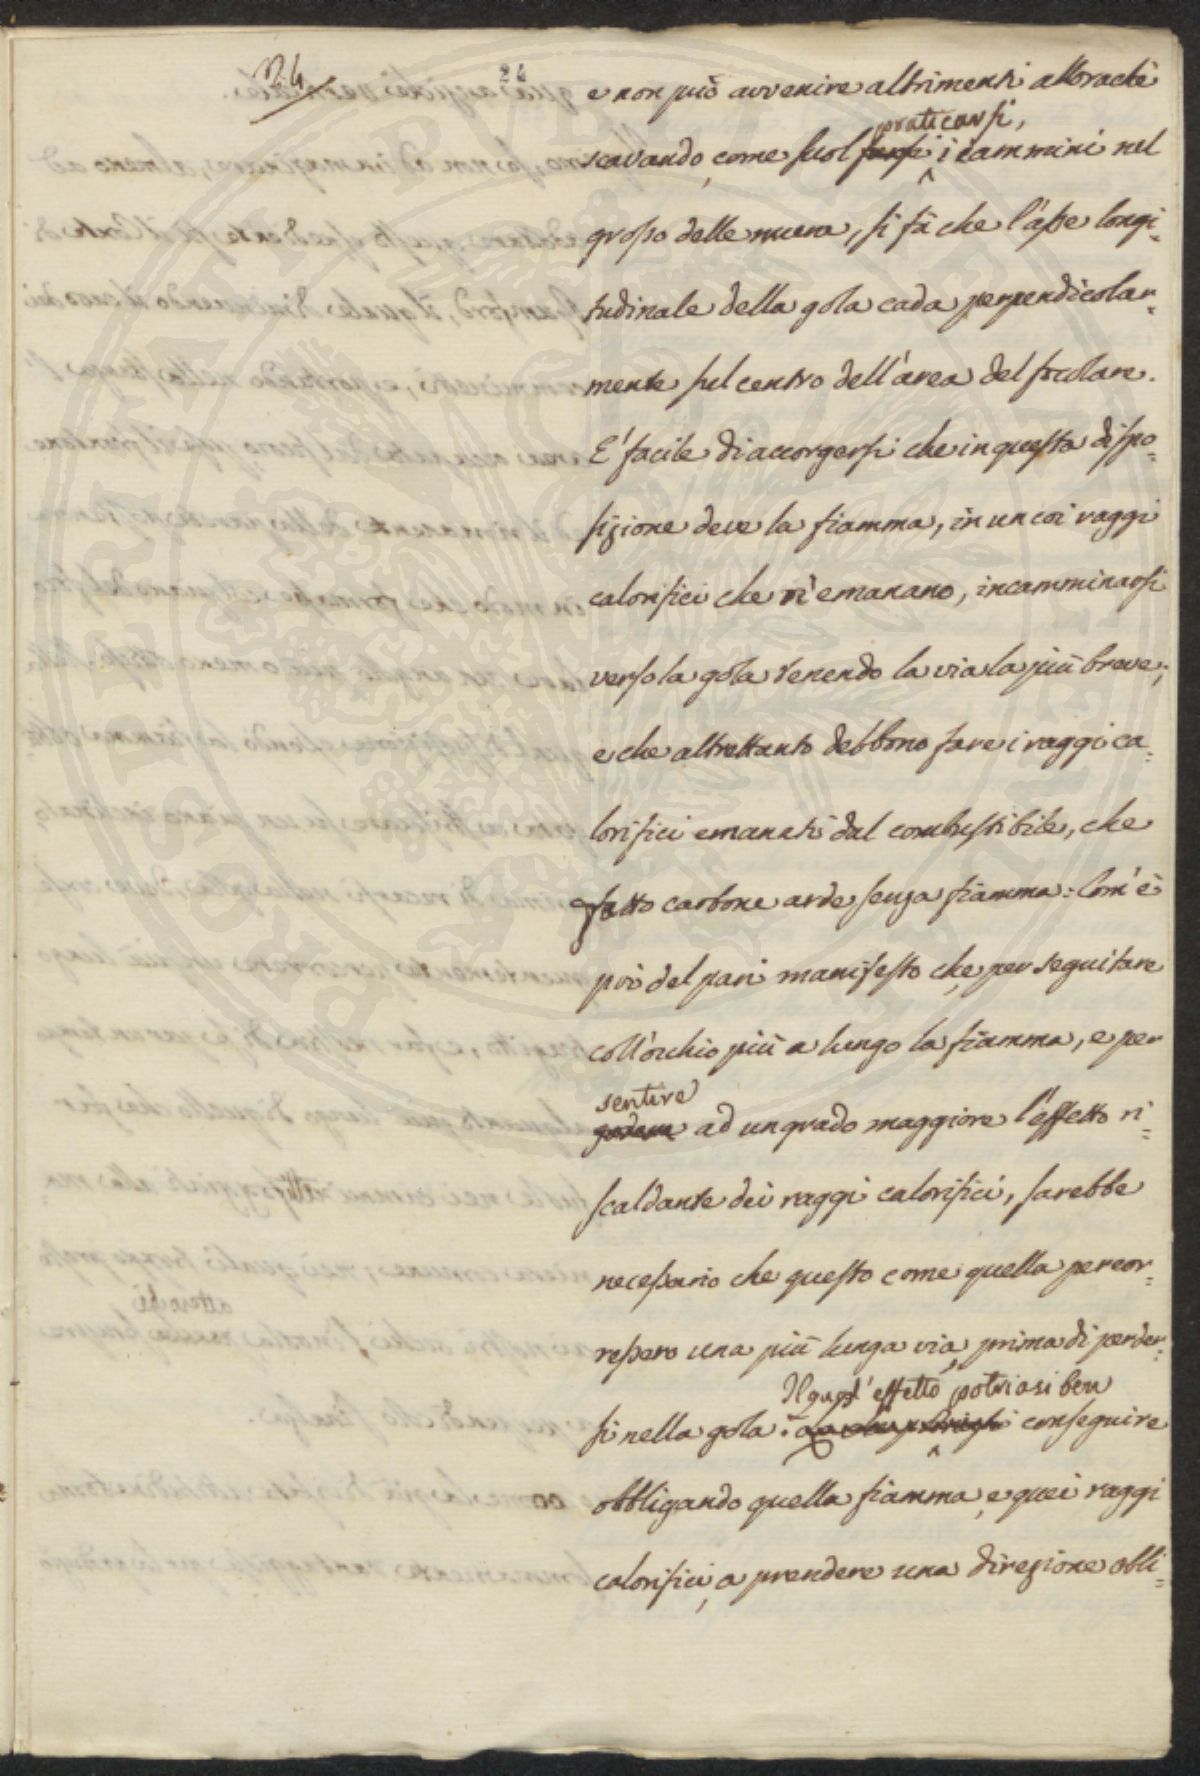 24
24
e non può avvenire altrimenti allorachè
praticarsi,
scavando, come suol farsi i cammini nel
grosso delle mura, si fà che l'asse longi=
tudinale della gola cada perpendicolar=
mente sul centro dell'area del focolare.
E' facile di accorgersi che in questa dispo=
sizione deve la fiamma, in un coi raggi
calorifici che n'emanano, incamminarsi
verso la gola tenendo la via la più breve;
e che altrettanto debbono fare i raggi ca=
lorifici emanati dal combustibile, che
fatto carbone arde senza fiamma: Com'è
poi del pari manifesto che, per seguitare
coll'occhio più a lungo la fiamma, e per
sentire
godere ad un grado maggiore l'effetto ri=
scaldante dei raggi calorifici, sarebbe
necessario che questo come quella percor=
ressero una più lunga via, prima di perder=
Il qual' effetto potriasi ben
si nella gola: conseguire
obbligando quella fiamma, e quei raggi
calorifici, a prendere una direzione obli=